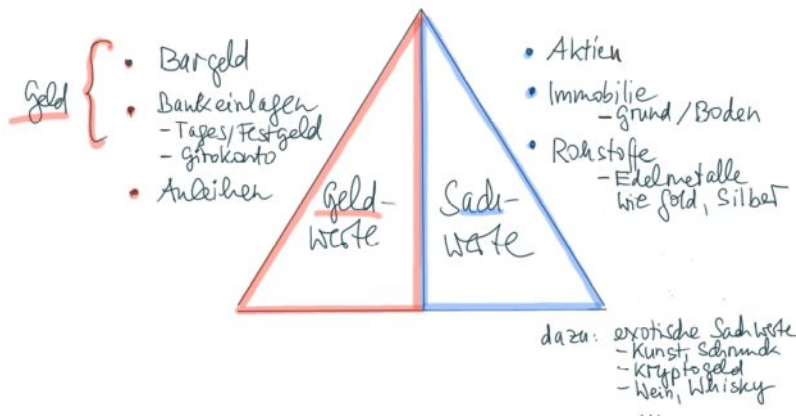 Geld
• Bargeld
• Bankeinlagen
- Tages/Festgeld
- Girokonto
• Anleihen
Geld-
werte
Sach-
werte
• Aktien
• Immobilie
- Grund/Boden
• Rohstoffe
- Edelmetalle
wie Gold, Silber
dazu: exotische Sachwerte
- Kunst, Schmuck
- Kryptogeld
- Wein, Whisky
...